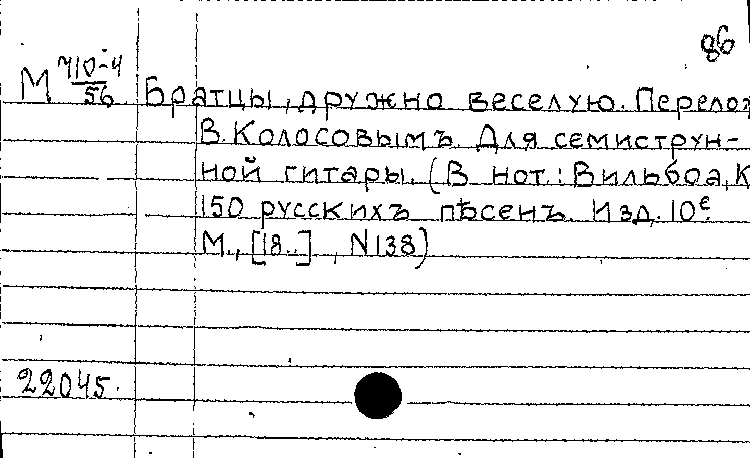 86
М 710-4/56
Братцы, дружно веселую. Перелож
В. Колосовымъ. Для семиструн-
ной гитары. (В нот.: Вильбоа, К
150 русскихъ пѣсенъ. Изд. 10е
М., [18..], N 138)
22045.